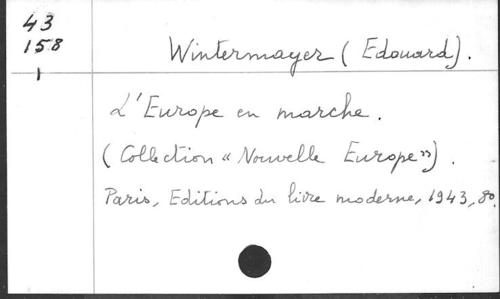 43
158
1
Wintermayer (Edouard).
L'Europe en marche.
(Collection « Nouvelle Europe »).
Paris, Editions du livre moderne, 1943, 8o.